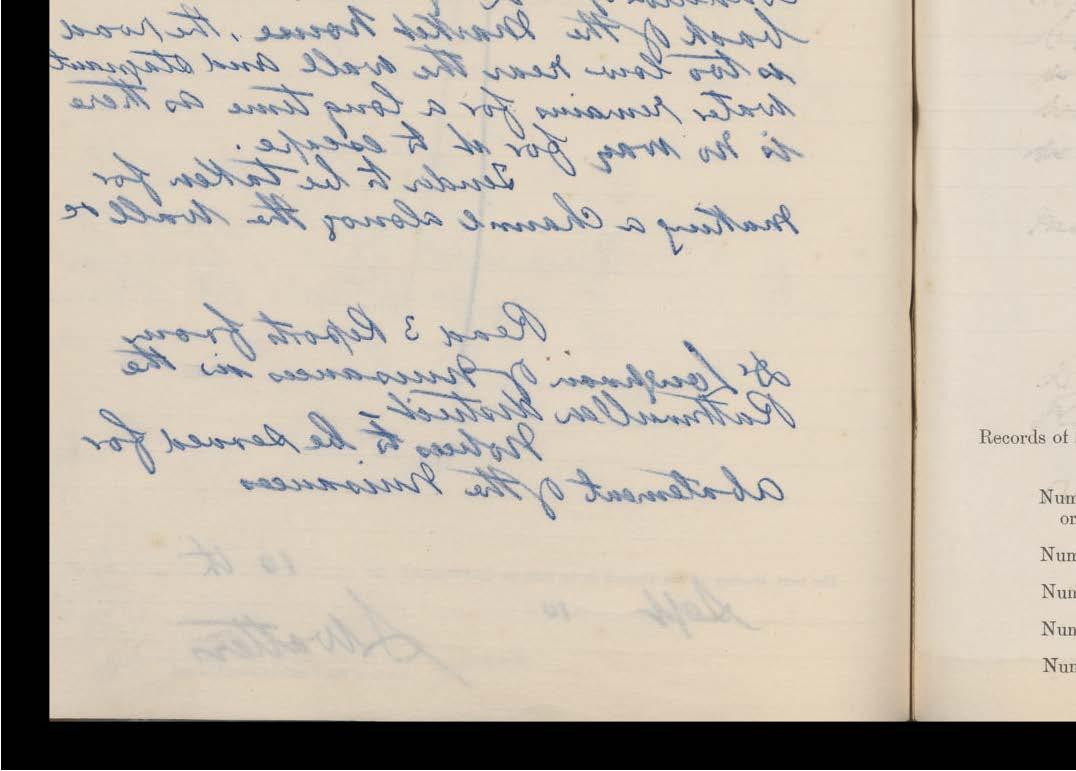 back of the Market House, the road
is too low near the wall and stagnant
water remains for a long time as there
is no way for it to escape.
Tender to be taken for
making a Channel along the Wall &c
Read 3 Reports from
Dr Loughnan of Nuisances in the
Rathmullen District
Notices to be served for
abatement of the Nuisances
10 th
Sept 10
Watters
Records of
Num
or
Num
Num
Num
Num